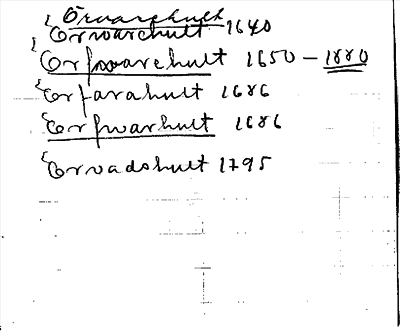 Örvarshult
Örvarchult 1640
Örfwarehult 1650 – 1880
Örfarahult 1686
Örfwarhult 1686
Örvadshult 1795